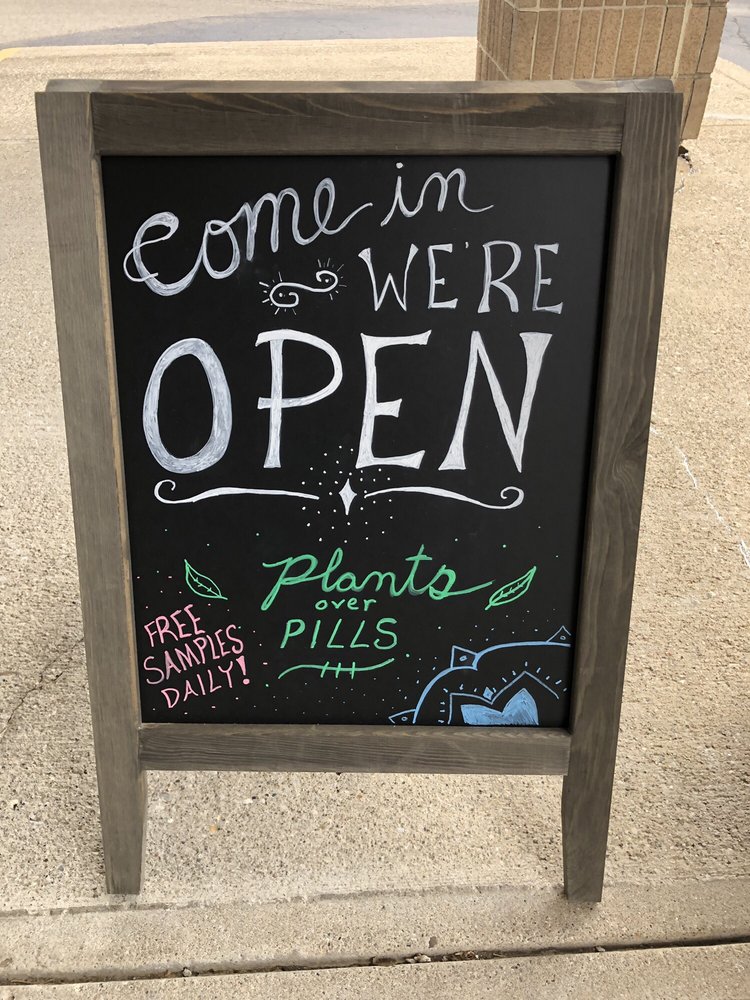 Come in
WE'RE
OPEN
Plants
over
PILLS
FREE
SAMPLES
DAILY!